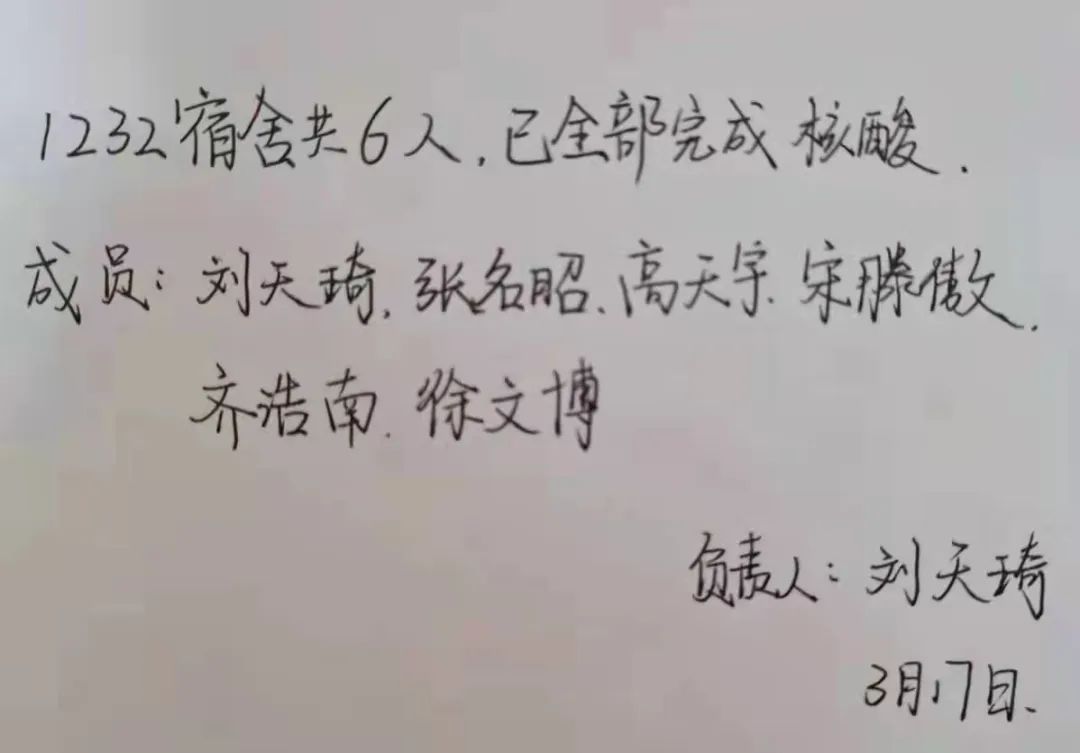 1232宿舍共6人,已全部完成核酸.
成员:刘天琦.张名昭.高天宇.宋滕傲.
齐浩南.徐文博
负责人:刘天琦
3月17日.